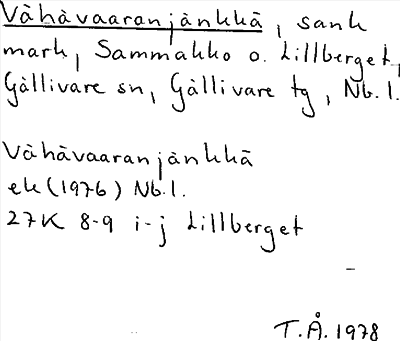 Vähävaaranjänkkä, sank
mark, Sammakko o. Lillberget,
Gällivare sn, Gällivare tg, Nb.l.
Vähävaaranjänkkä
ek (1976) Nb.l.
27K 8-9 i-j Lillberget
T.Å. 1978